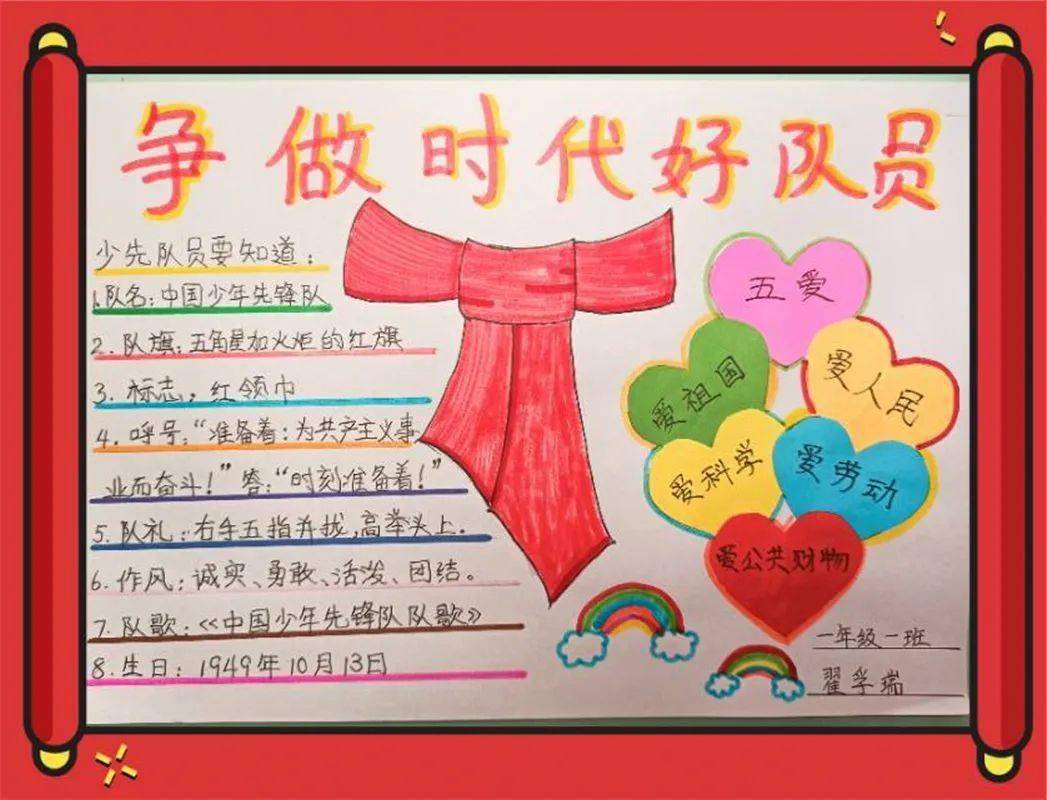 争做时代好队员
少先队员要知道：
1.队名：中国少年先锋队
2.队旗：五角星加火炬的红旗
3.标志：红领巾
4.呼号：“准备着：为共产主义事
业而奋斗！”答：“时刻准备着！”
5.队礼：右手五指并拢,高举头上.
6.作风：诚实、勇敢、活泼、团结。
7.队歌：《中国少年先锋队队歌》
8.生日：1949年10月13日
五爱
爱祖国
爱人民
爱科学
爱劳动
爱公共财物
一年级一班
翟孚瑞